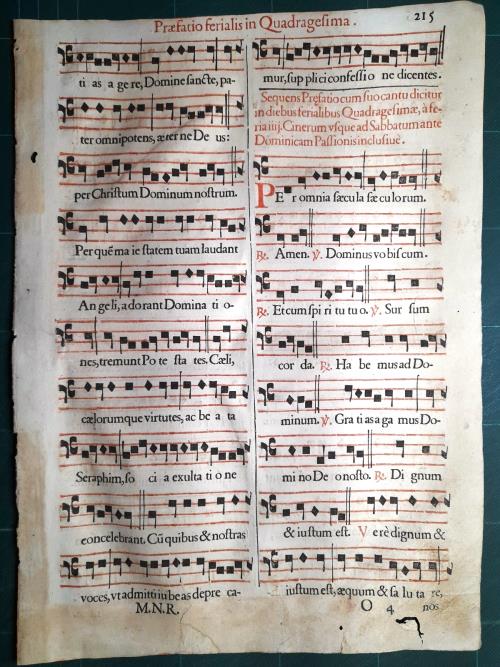 Præfatio ferialis in Quadragesima.
215
ti as a ge re, Domine sancte, pa-
ter omnipotens, æter ne De us:
per Christum Dominum nostrum.
Per quẽ ma ie statem tuam laudant
An ge li, ado rant Domina ti o-
nes, tremunt Po te sta tes. Cæli,
cælorumque virtutes, ac be a ta
Seraphim, so ci a exulta ti o ne
concelebrant. Cũ quibus & nostras
voces, vt admitti iu be as depre ca-
M.N.R.
mur, sup plici confessi o ne dicentes.
Sequens Præfatio cum suo cantu dicitur
in diebus ferialibus Quadragesimæ, à fe-
ria iiij. Cinerum vsque ad Sabbatum ante
Dominicam Passionis inclusiuè.
PE r omnia sæcu la sæ cu lorum.
℟. Amen. ℣. Dominus vo bis cum.
℟. Et cum spi ri tu tu o. ℣. Sur sum
cor da. ℟. Ha be mus ad Do-
minum. ℣. Gra ti as a ga mus Do-
mi no De o nosto. ℟. Di gnum
& iustum est. V erè dignum &
iustum est, æquum & sa lu ta re,
O 4 nos